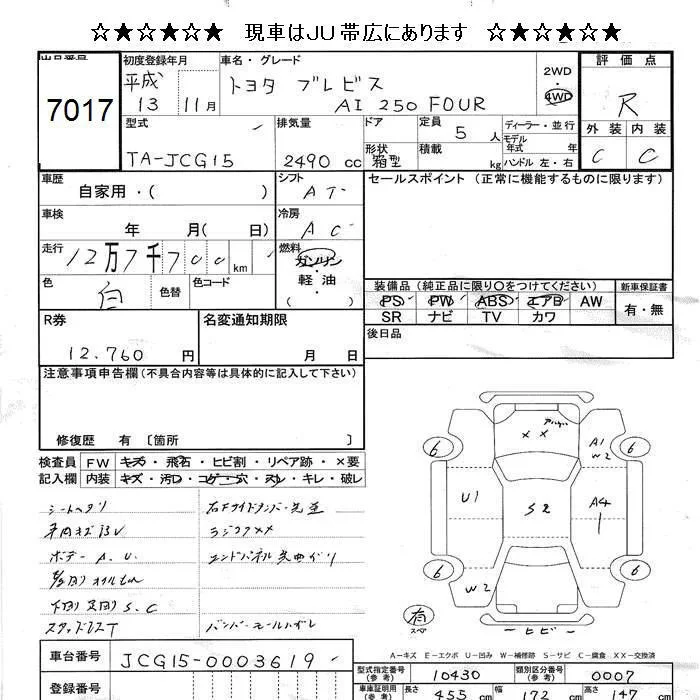 ☆★☆★☆★☆ 現車はJU帯広にあります ☆★☆★☆★☆
出品番号
7017
初度登録年月
平成
13 11月
車名・グレード
トヨタ ブレビス
AI 250 FOUR
2WD
・
4WD
評価点
R
外装 内装
C C
型式
TA-JCG15
排気量
2490 cc
ドア
形状
箱型
定員
5 人
積載
kg
ディーラー・並行
モデル
年式 年
ハンドル 左・右
車歴
自家用・( )
シフト
AT
セールスポイント(正常に機能するものに限ります)
車検
年 月( 日)
冷房
AC
走行
12万7千700km
燃料
ガソリン
・
軽・油
( )
色
白
色替
色コード
装備品(純正品に限り○をつけてください)
PS PW ABS エアB AW
SR ナビ TV カワ
新車保証書
有・無
R券
12,760 円
名変通知期限
月 日
後日品
注意事項申告欄(不具合内容等は具体的に記入して下さい)
修復歴 有〔箇所 〕
検査員 FW キズ・飛石・ヒビ割・リペア跡・×要
記入欄 内装 キズ・汚レ・コゲ・穴・スレ・キレ・破レ
シートヘタリ
ボデー A.U.
下廻り足廻り S.C
スタッドレスT
6
6
6
6
××
A1
W2
U1
S2
A4
W2
有
スペア
ヒビ
A-キズ E-エクボ U-凹み W-補修跡 S-サビ C-腐食 XX-交換済
車台番号 JCG15-0003619
登録番号
型式指定番号
(参考)
10430
類別区分番号
(参考)
0007
車庫証明用
(参考)
長さ 455 cm 幅 172 cm 高さ 147 cm